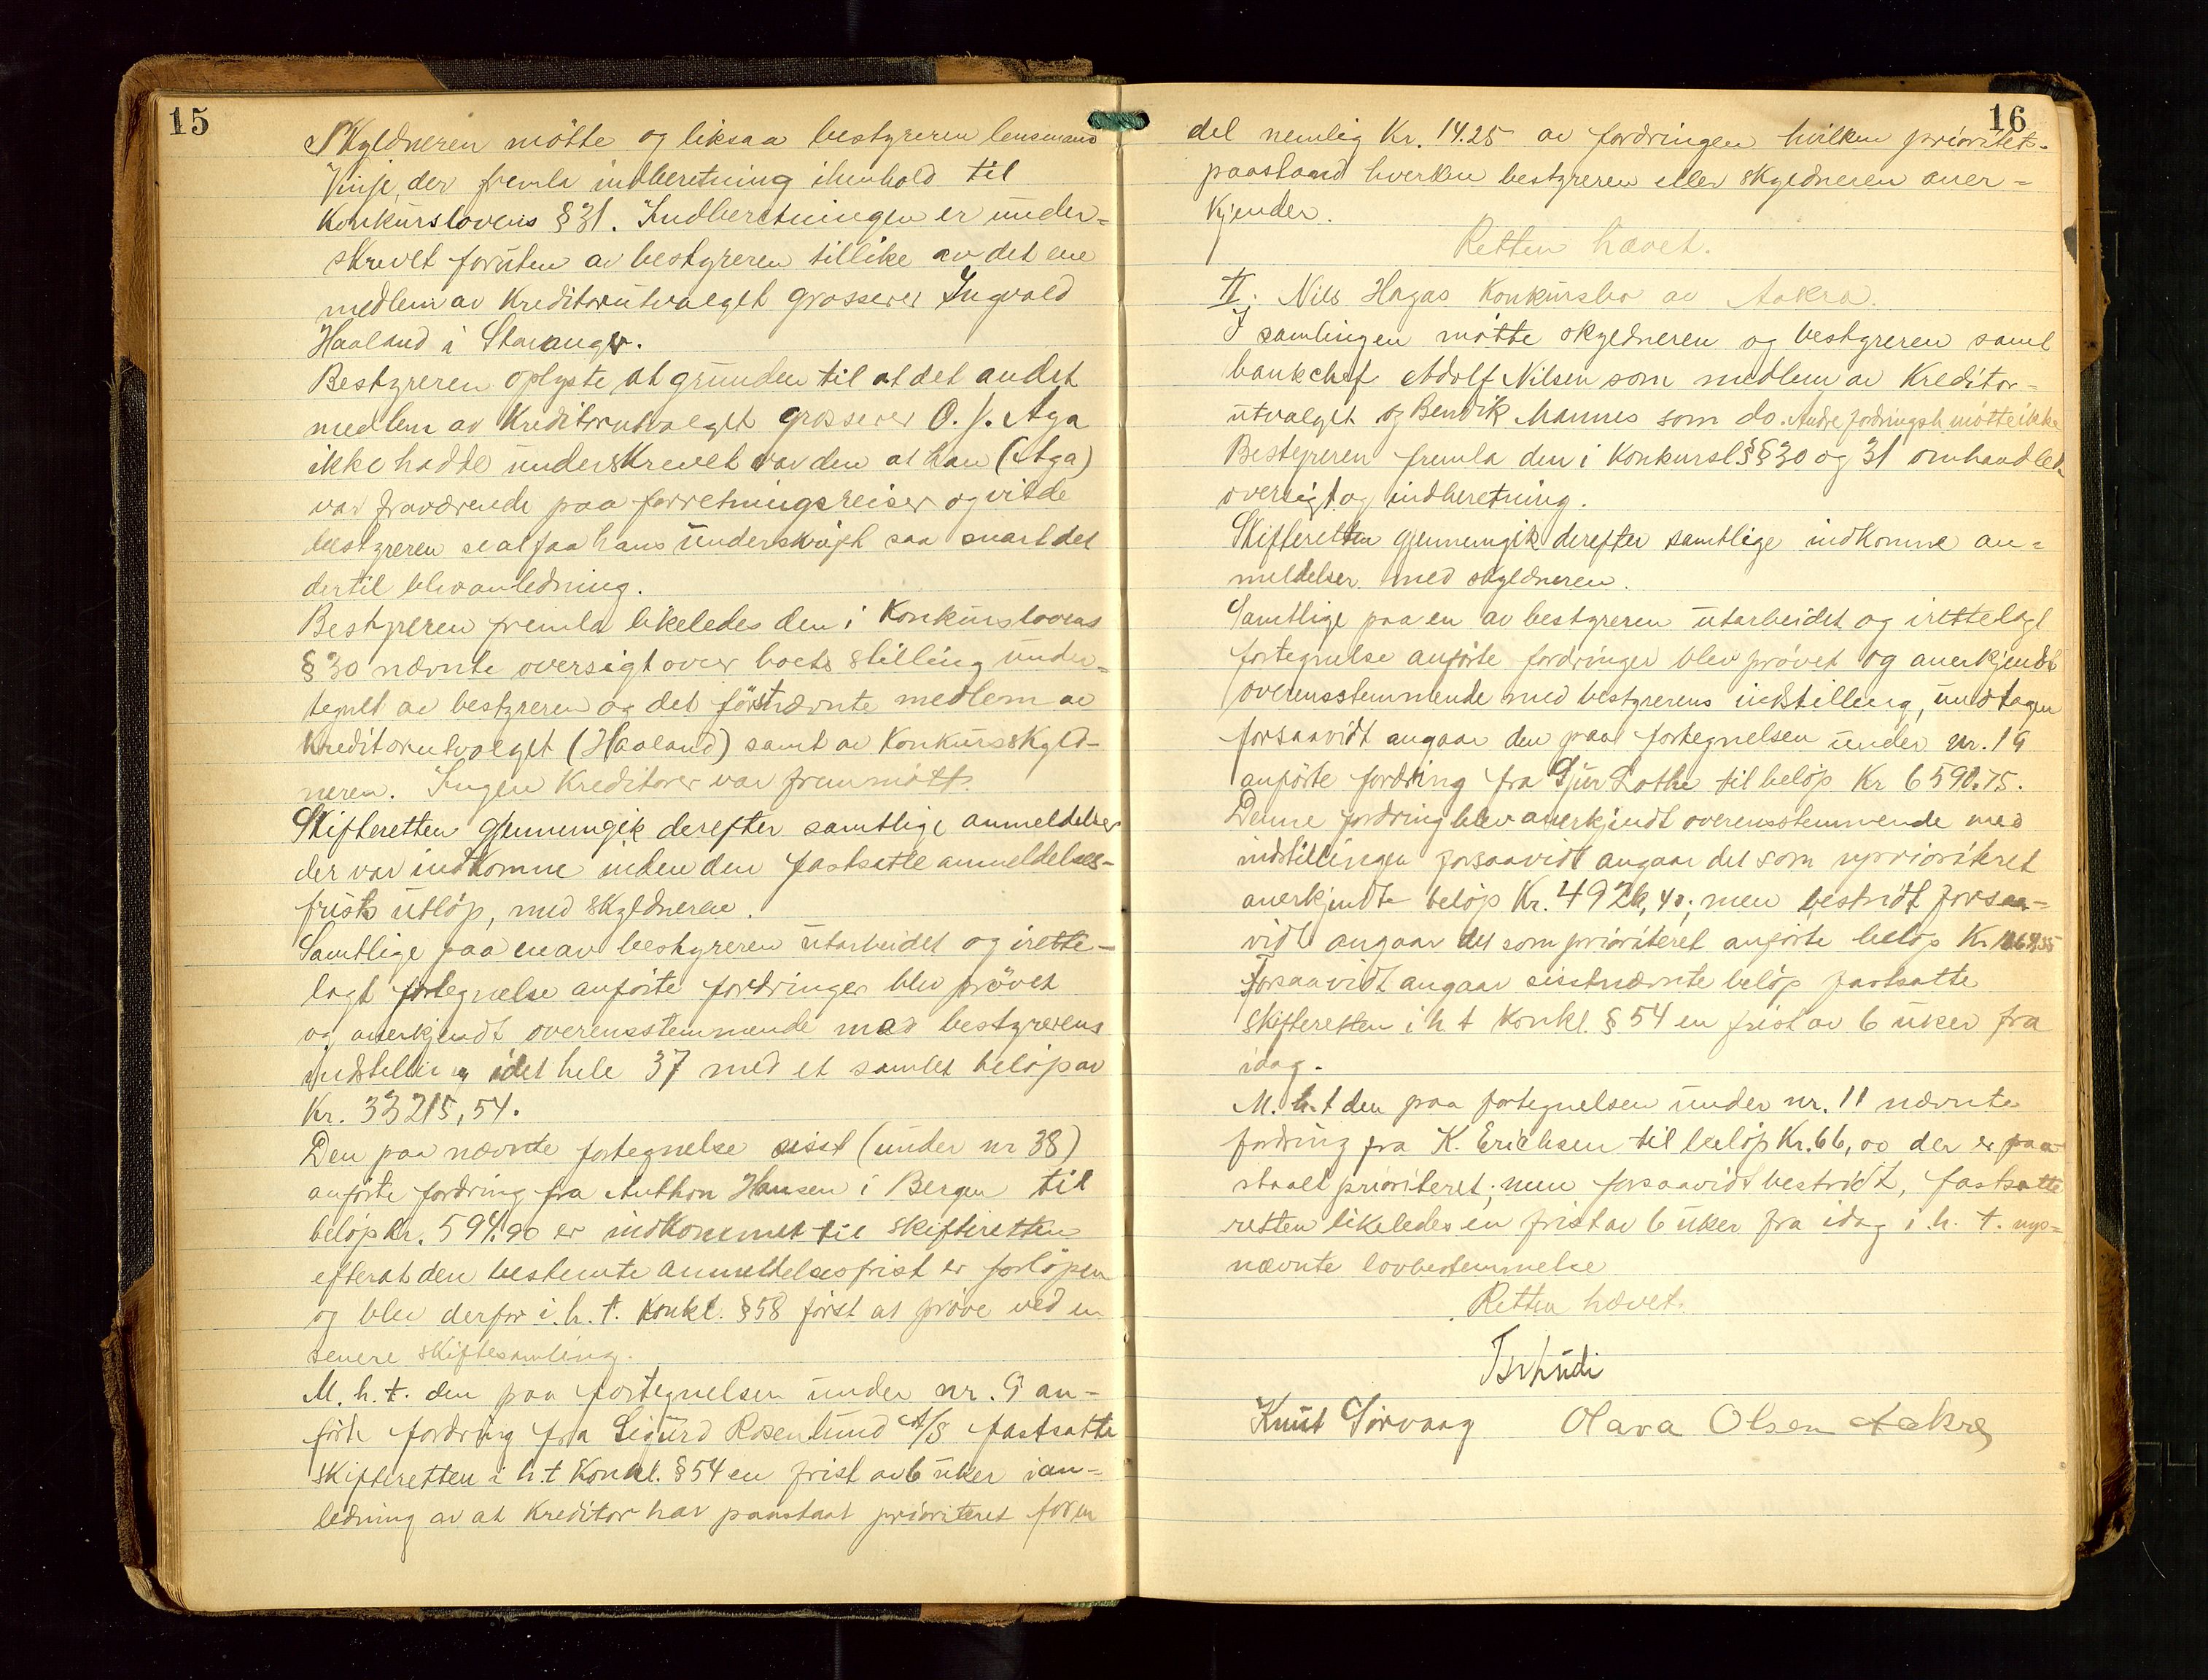 15
Skyldneren mötte og liksaa bestyreren lensmand
Vinje, der fremla indberetning ihenhold til
Konkurslovens § 31. Indberetningen er under=
skrevet foruten av bestyreren tillike av det ene
medlem av Kreditorutvalget grosserer Ingvald
Haaland i Stavanger.
Bestyreren oplyste at grunden til at det andet
medlem av Kreditorutvalget grosserer O. J. Aga
ikke hadde underskrevet var den at han (Aga)
var fraværende paa forretningsreiser og vilde
bestyreren se at faa hans underskrift saa snart det
dertil blev anledning.
Bestyreren fremla likeledes den i Konkurslovens
§ 30 nævnte oversigt over boets stilling under=
tegnet av bestyreren og det förstnævnte medlem av
Kreditorutvalget (Haaland) samt av Konkursskyld-
neren. Ingen Kreditorer var fremmött.
Skifteretten gjennemgik derefter samtlige anmeldelser
der var indkomne inden den fastsatte anmeldelses-
frists utlöp, med skyldneren.
Samtlige paa en av bestyreren utarbeidet og irette-
lagt fortegnelse anförte fordringer blev prövet
og anerkjendt overensstemmende med bestyrerens
indstilling idet hele 37 med et samlet belöp av
Kr. 33215,54.
Den paa nævnte fortegnelse sisst (under nr 38)
anförte fordring fra Anthon Hansen i Bergen til
belöp kr. 594.90 er indkommet til skifteretten
efterat den bestemte anmeldelsesfrist er forlöpen
og blev derfor i. h. t. Konkl. § 58 först at pröve ved en
senere skiftesamling.
M. h. t. den paa fortegnelsen under nr. 9 an-
förte fordring fra Sigurd Rosenlund A/S fastsatte
skifteretten i h. t Konkl. § 54 en frist av 6 uker i an-
ledning av at Kreditor har paastaat prioriteret for en
16
del nemlig Kr. 14.25 av fordringen hvilken prioritet-
paastand hverken bestyreren eller skyldneren aner=
kjender.
Retten hævet.
II. Nils Hagas Konkursbo av Aakra.
I samlingen mötte skyldneren og bestyreren samt
bankchef Adolf Nilsen som medlem av Kreditor=
utvalget og Bendik Mannes som do. Andre fordringsh. mötte ikke
Bestyreren fremla den i Konkursl. §§ 30 og 31 omhandlede
oversigt og indberetning.
Skifteretten gjennemgik derefter samtlige indkomne an=
meldelser med skyldneren.
Samtlige paa en av bestyreren utarbeidet og irettelagt
fortegnelse anförte fordringer blev prövet og anerkjendt
overensstemmende med bestyrerens indstilling, undtagen
forsaavidt angaar den paa fortegnelsen under nr. 19
anförte fordring fra Sjur Lothe til belöp Kr 6590.75.
Denne fordring blev anerkjendt overensstemmende med
indstillingen forsaavidt angaar det som uprioriteret
anerkjendte belöp Kr. 492,40; men bestridt forsaa-
vidt angaar det som prioriteret anförte belöp Kr
Forsaavidt angaar sisstnævnte belöp fastsatte
skifteretten i h. t Konkl. § 54 en frist av 6 uker fra
idag.
M. h. t den paa fortegnelsen under nr. 11 nævnte
fordring fra K. Erichsen til belöp Kr. 66,00 der er paa-
staaet prioriteret; men forsaavidt bestridt, fastsatte
retten likeledes en frist av 6 uker fra idag i. h. t. nys=
nævnte lovbestemmelse
Retten hævet.
Tschudi
Knut Sörvaag Olava Olsen Aakre